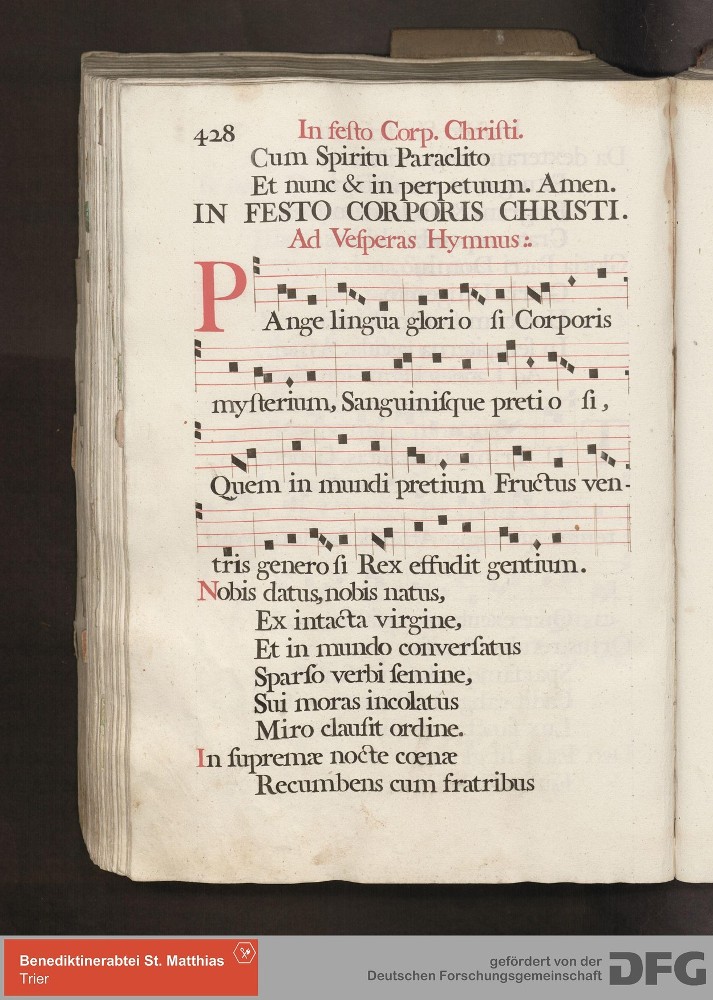 428 In feſto Corp. Chriſti.
Cum Spiritu Paraclito
Et nunc & in perpetuum. Amen.
IN FESTO CORPORIS CHRISTI.
Ad Veſperas Hymnus:.
PAnge lingua glorio ſi Corporis
myſterium, Sanguiniſque preti o ſi,
Quem in mundi pretium Fructus ven-
tris genero ſi Rex effudit gentium.
Nobis datus, nobis natus,
Ex intacta virgine,
Et in mundo converſatus
Sparſo verbi ſemine,
Sui moras incolatûs
Miro clauſit ordine.
In ſupremæ nocte cœnæ
Recumbens cum fratribus
Benediktinerabtei St. Matthias
Trier
gefördert von der
Deutschen Forschungsgemeinschaft
DFG